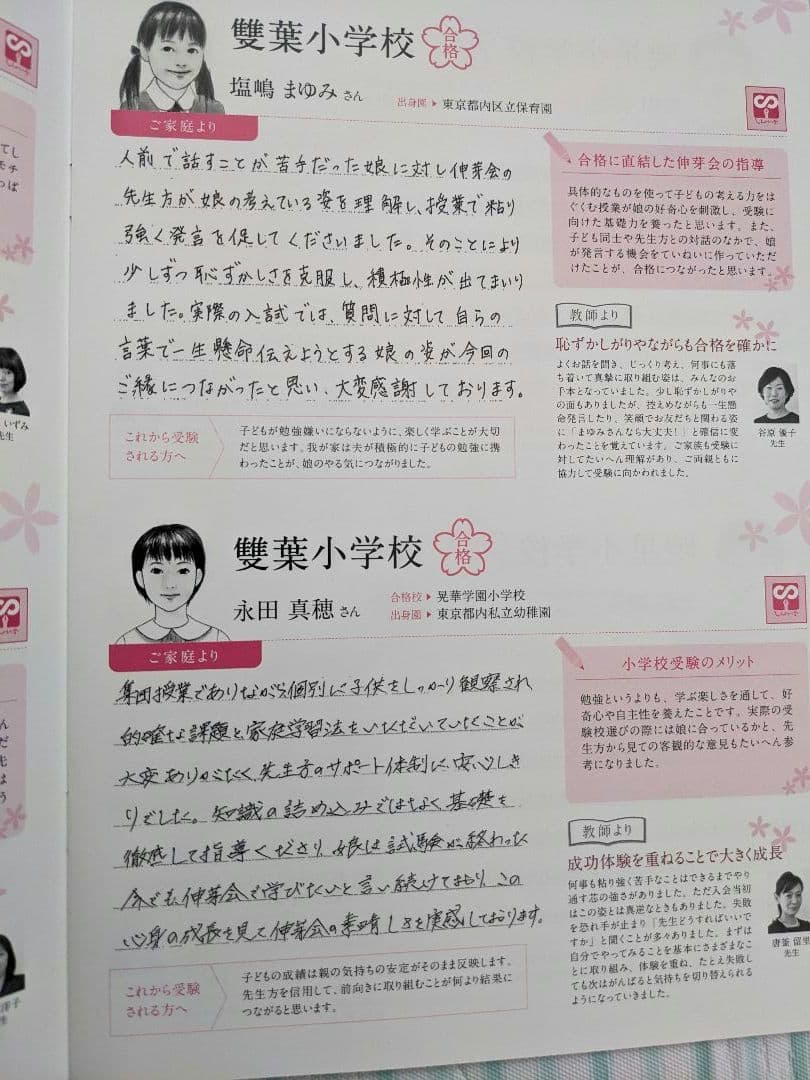 雙葉小学校
合格
塩嶋 まゆみ さん
出身園 ▶ 東京都内区立保育園
ご家庭より
人前で話すことが苦手だった娘に対し伸芽会の
先生方が娘の考えている姿を理解し、授業で粘り
強く発言を促してくださいました。そのことにより
少しずつ恥ずかしさを克服し、積極性が出てまいり
ました。実際の入試では、質問に対して自らの
言葉で一生懸命伝えようとする娘の姿が今回の
ご縁につながったと思い、大変感謝しております。
これから受験
される方へ
子どもが勉強嫌いにならないように、楽しく学ぶことが大切
だと思います。我が家は夫が積極的に子どもの勉強に携
わったことが、娘のやる気につながりました。
合格に直結した伸芽会の指導
具体的なものを使って子どもの考える力をは
ぐくむ授業が娘の好奇心を刺激し、受験に
向けた基礎力を養ったと思います。また、
子ども同士や先生方との対話のなかで、娘
が発言する機会をていねいに作っていただ
けたことが、合格につながったと思います。
教師より
恥ずかしがりやながらも合格を確かに
よくお話を聞き、じっくり考え、何事にも落
ち着いて真摯に取り組む姿は、みんなのお
手本となっていました。少し恥ずかしがりや
の面もありましたが、控えめながらも一生懸
命発言したり、笑顔でお友だちと関わる姿
に「まゆみさんなら大丈夫!」と確信に変
わったことを覚えています。ご家族も受験に
対してたいへん理解があり、ご両親ともに
協力して受験に向かわれました。
谷原 優子
先生
雙葉小学校
合格
永田 真穂 さん
合格校 ▶ 晃華学園小学校
出身園 ▶ 東京都内私立幼稚園
ご家庭より
集団授業でありながら個別に子供をしっかり観察され
的確な課題と家庭学習法をいただいていたことが
大変ありがたく、先生方のサポート体制に安心しき
りでした。知識の詰め込みではなく、基礎を
徹底して指導くださり、娘は試験が終わった
今でも伸芽会で学びたいと言い続けており、この
心身の成長を見て伸芽会の素晴しさを実感しております。
これから受験
される方へ
子どもの成績は親の気持ちの安定がそのまま反映します。
先生方を信用して、前向きに取り組むことが何より結果に
つながると思います。
小学校受験のメリット
勉強というよりも、学ぶ楽しさを通して、好
奇心や自主性を養えたことです。実際の受
験校選びの際には娘に合っているかと、先
生方から見ての客観的な意見もたいへん参
考になりました。
教師より
成功体験を重ねることで大きく成長
何事も粘り強く苦手なことはできるまでやり
通す芯の強さがありました。ただ入会当初
はこの姿とは真逆なときもありました。失敗
を恐れ手が止まり「先生どうすればいいで
すか」と聞くことが多々ありました。まずは
自分でやってみることを基本にさまざまなこ
とに取り組み、体験を重ね、たとえ失敗し
ても次はがんばると気持ちを切り替えられる
ようになっていきました。
唐釜 留里
先生
いずみ
先生